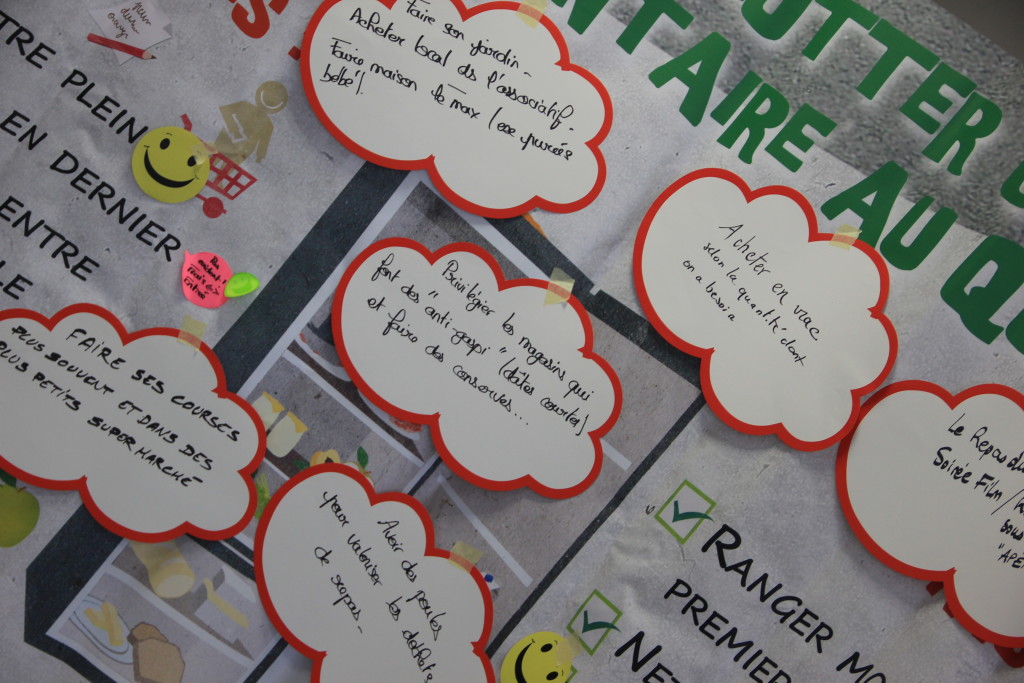 UTTER
NTAIRE AU QU
TRE PLEIN
EN DERNIER
ENTRE
LE
Faire son jardin -
Acheter local ds l'associatif.
Faire maison le max (ex purées
bébé).
Acheter en vrac
selon la quantité dont
on a besoin
Privilégier les magasins qui
font des "anti-gaspi" (dates courtes)
et faire des conserves...
FAIRE SES COURSES
PLUS SOUVENT ET DANS DES
PLUS PETITS SUPERMARCHÉ
Avoir des poules
pour valoriser les déchets
de repas -
Le Repas
Soirée Film /
"APE
RANGER MO
PREMIER
NET